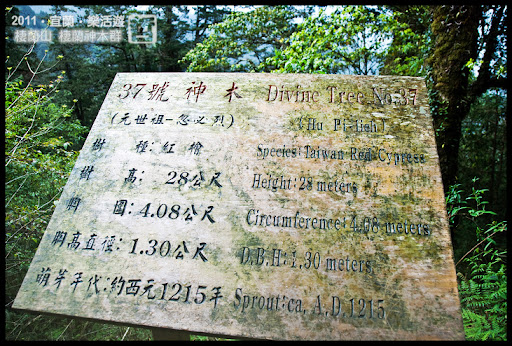 2011・宜蘭・樂活遊
棲蘭山 棲蘭神木群
37號 神木 Divine Tree No:37
(元世祖-忽必烈) (Hu Pi-lieh)
樹 種:紅檜 Species:Taiwan Red Cypress
樹 高: 28公尺 Height:28 meters
胸 圍:4.08公尺 Circumference:4.08 meters
胸高直徑:1.30公尺 D.B.H:1.30 meters
萌芽年代:約西元1215年 Sprout:ca, A,D.1215